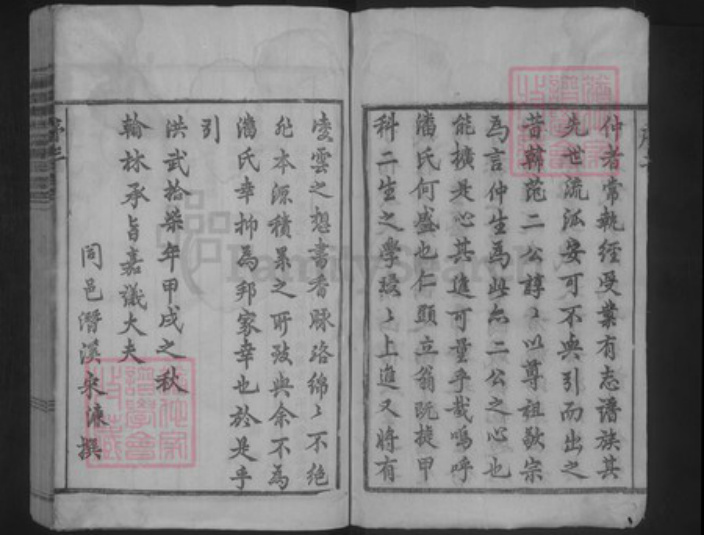 仲者常執經受業有志譜族其
先世流派安可不與引而出之
昔韓范二公諄〻以尊祖敬宗
為言仲生為此亦二公之心也
能擴是心其進可量乎哉嗚呼
潘氏何盛也仁顯立翁既捷甲
科二生之學駸〻上進又將有
凌雲之想書香脉絡綿〻不絕
非本源積累之所致與余不為
潘氏幸抑為邦家幸也於是乎
引
洪武拾柒年甲戌之秋
翰林承旨嘉議大夫
同邑潛溪宋濂撰
FamilySearch